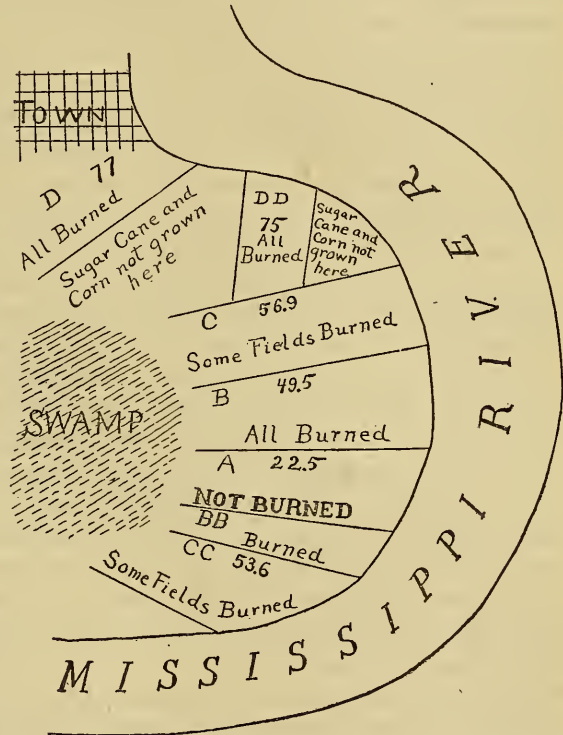 TOWN
D 77
All Burned
Sugar Cane and
Corn not grown
here
DD
75
All
Burned
Sugar
Cane and
Corn not
grown
here
C 56.9
Some Fields Burned
B 49.5
All Burned
A 22.5
NOT BURNED
BB
Burned
CC 53.6
Some Fields Burned
SWAMP
MISSISSIPPI RIVER